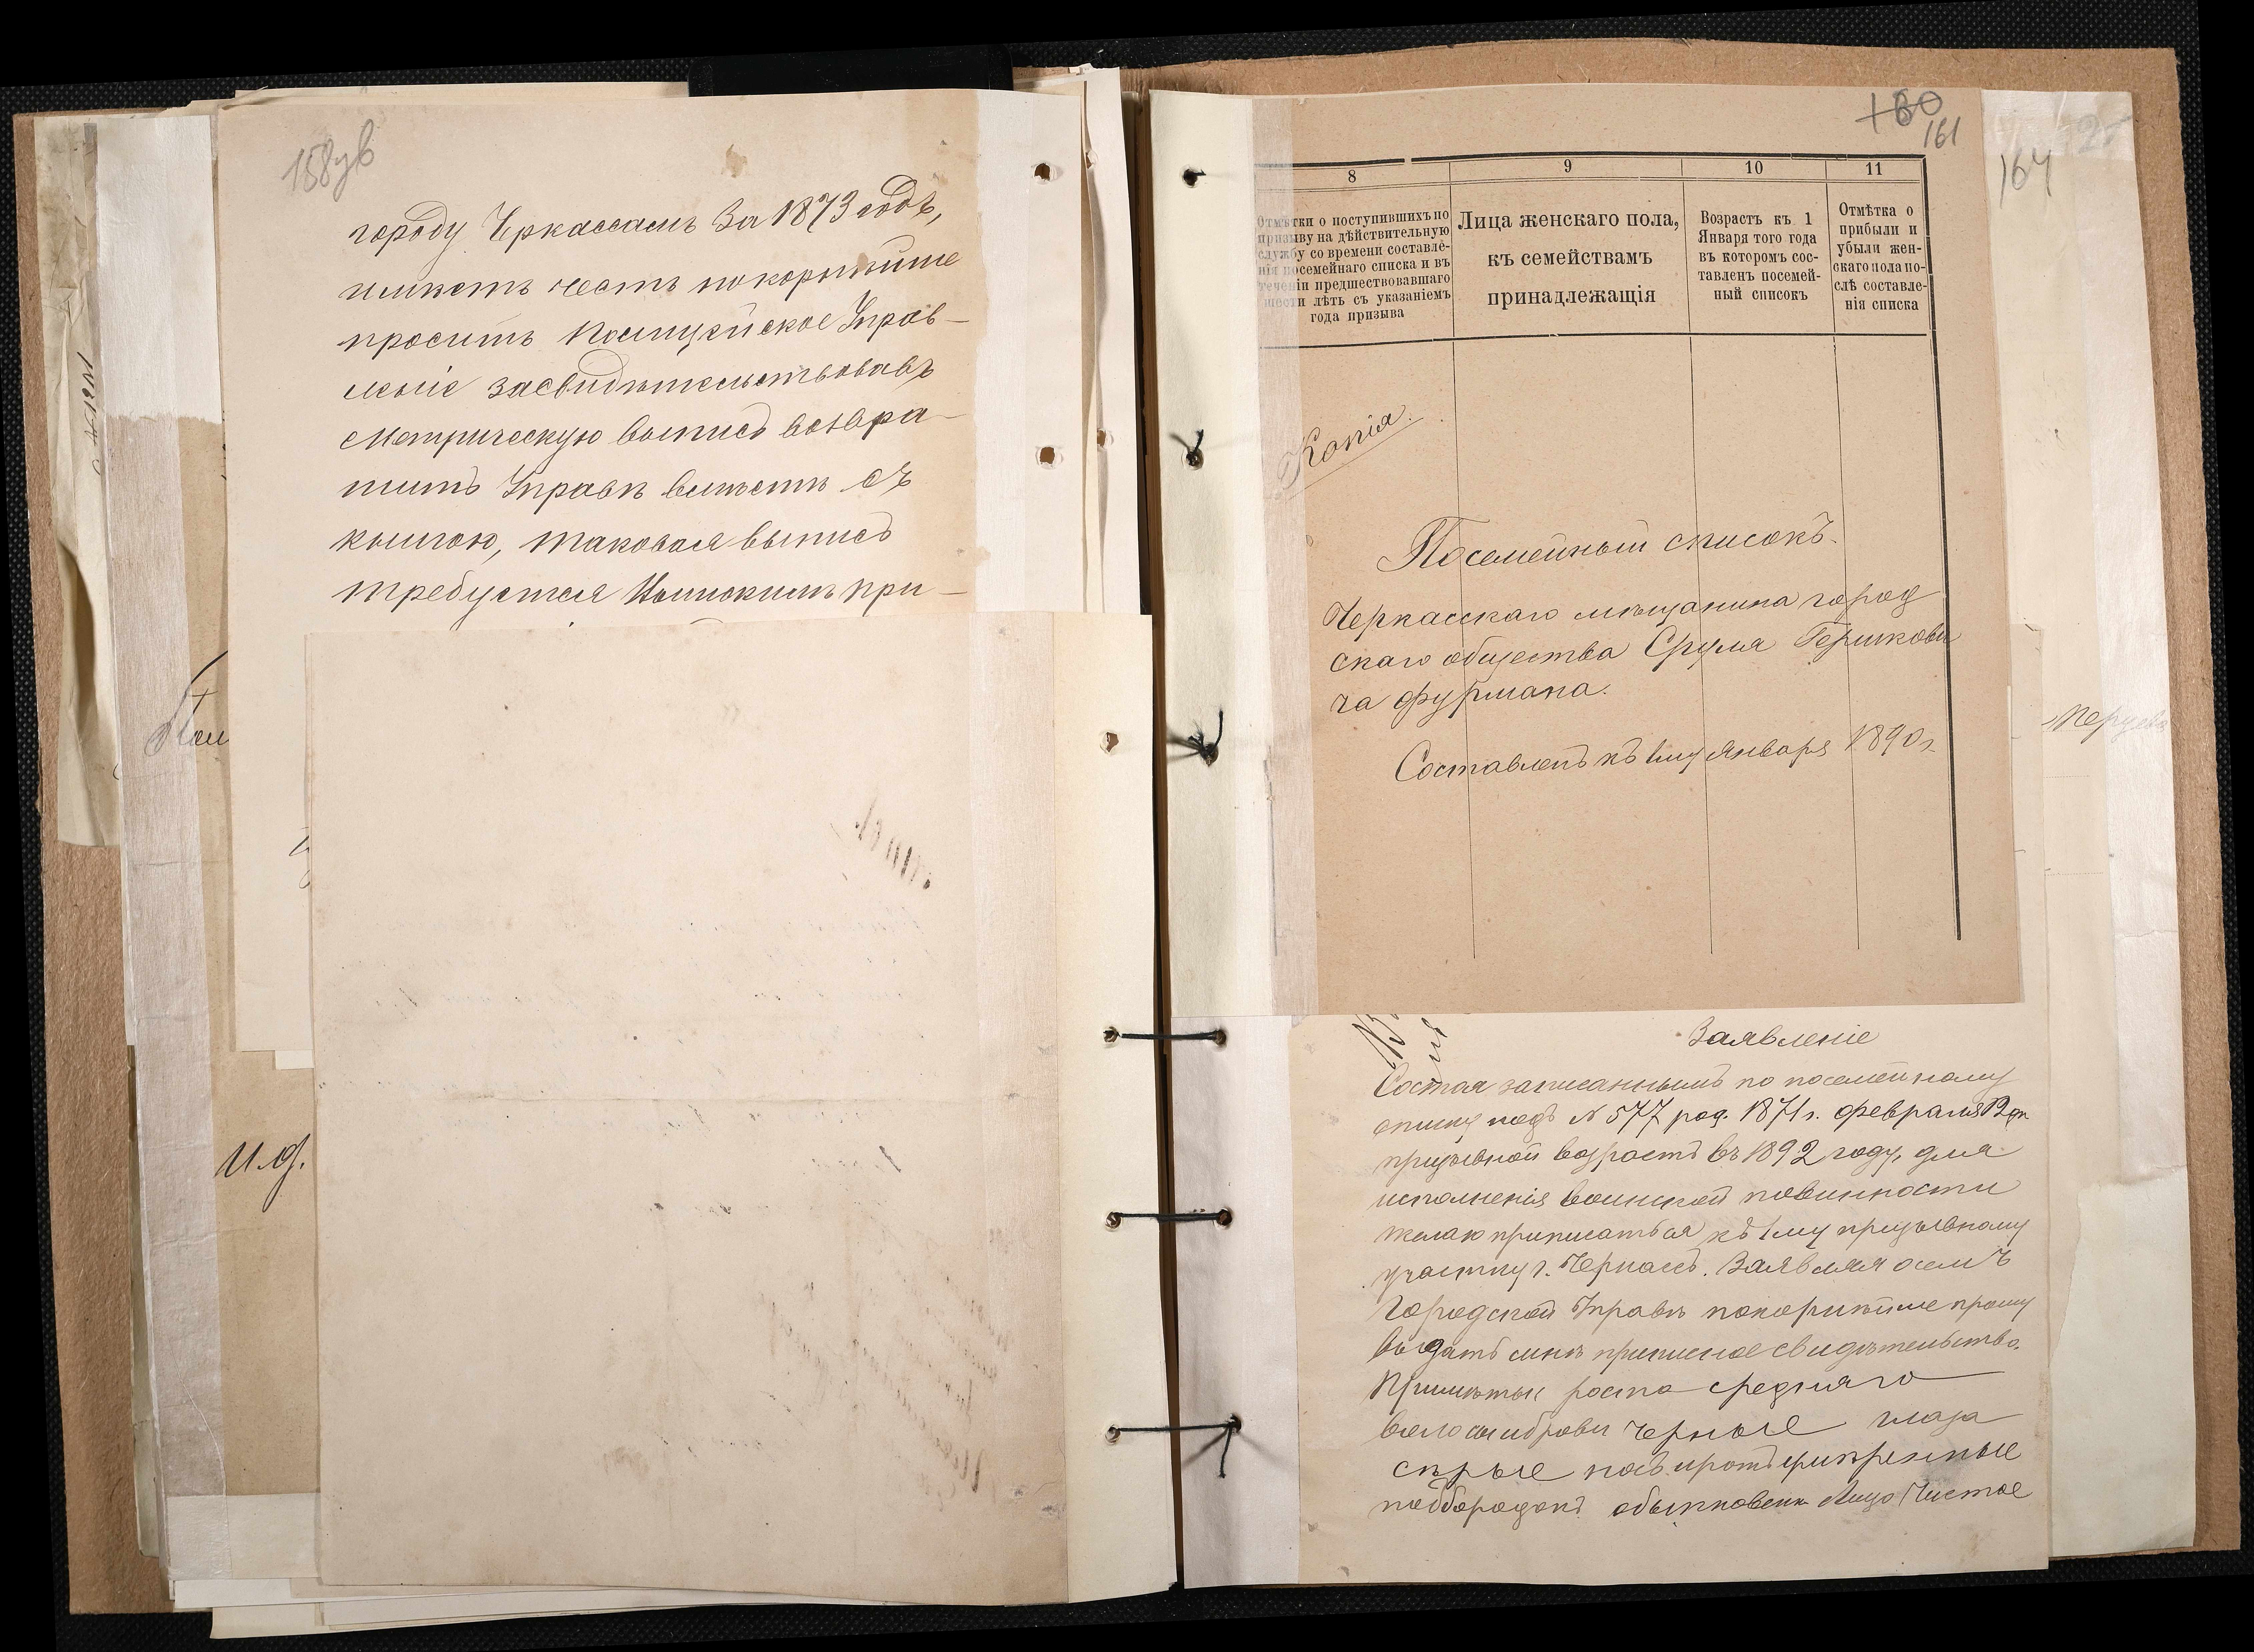 158 зв
городу Черкассамъ за 1873 годъ,
имѣетъ честь покорнѣйше
просить Полицейское Управ-
леніе засвидѣтельствовавъ
Метрическую выпись возвра-
тить Управѣ вмѣстѣ съ
книгою, таковая выпись
требуется при-
И.д.
160
161
164
8
9
10
11
Отмѣтки о поступившихъ по
призыву на дѣйствительную
службу со времени составле-
нія посемейнаго списка и въ
теченіи предшествовавшаго
шести лѣтъ съ указаніемъ
года призыва
Лица женскаго пола,
къ семействамъ
принадлежащія
Возрастъ къ 1
Января того года
въ которомъ сос-
тавленъ посемей-
ный списокъ
Отмѣтка о
прибыли и
убыли жен-
скаго пола по-
слѣ составле-
нія списка
Копія.
Посемейный списокъ.
Черкасскаго мѣщанина город
скаго общества Сруля Гершкови
ча Фурмана.
Составленъ къ 1му Января 1890 г.
Заявленіе
Состоя записаннымъ по посемейному
списку подъ № 577 род. 1871 г. февраля 12 дн.
призывной возрастъ въ 1892 году, для
исполненія воинской повинности
желаю приписаться къ 1му призывному
участку г. Черкассъ. Заявляя о семъ
Городской Управѣ покорнѣйше прошу
выдать мнѣ приписное свидѣтельство.
Примѣты роста средняго
волосы и брови черные глаза
сѣрые носъ и ротъ умѣренные
подбородокъ обыкновен. Лицо Чистое